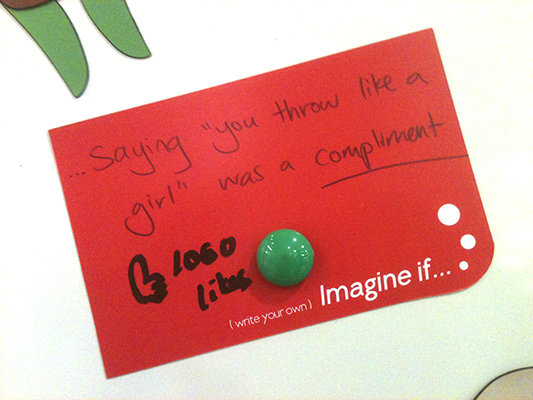 ...saying "you throw like a
girl" was a compliment
1060
likes
(write your own) Imagine if...